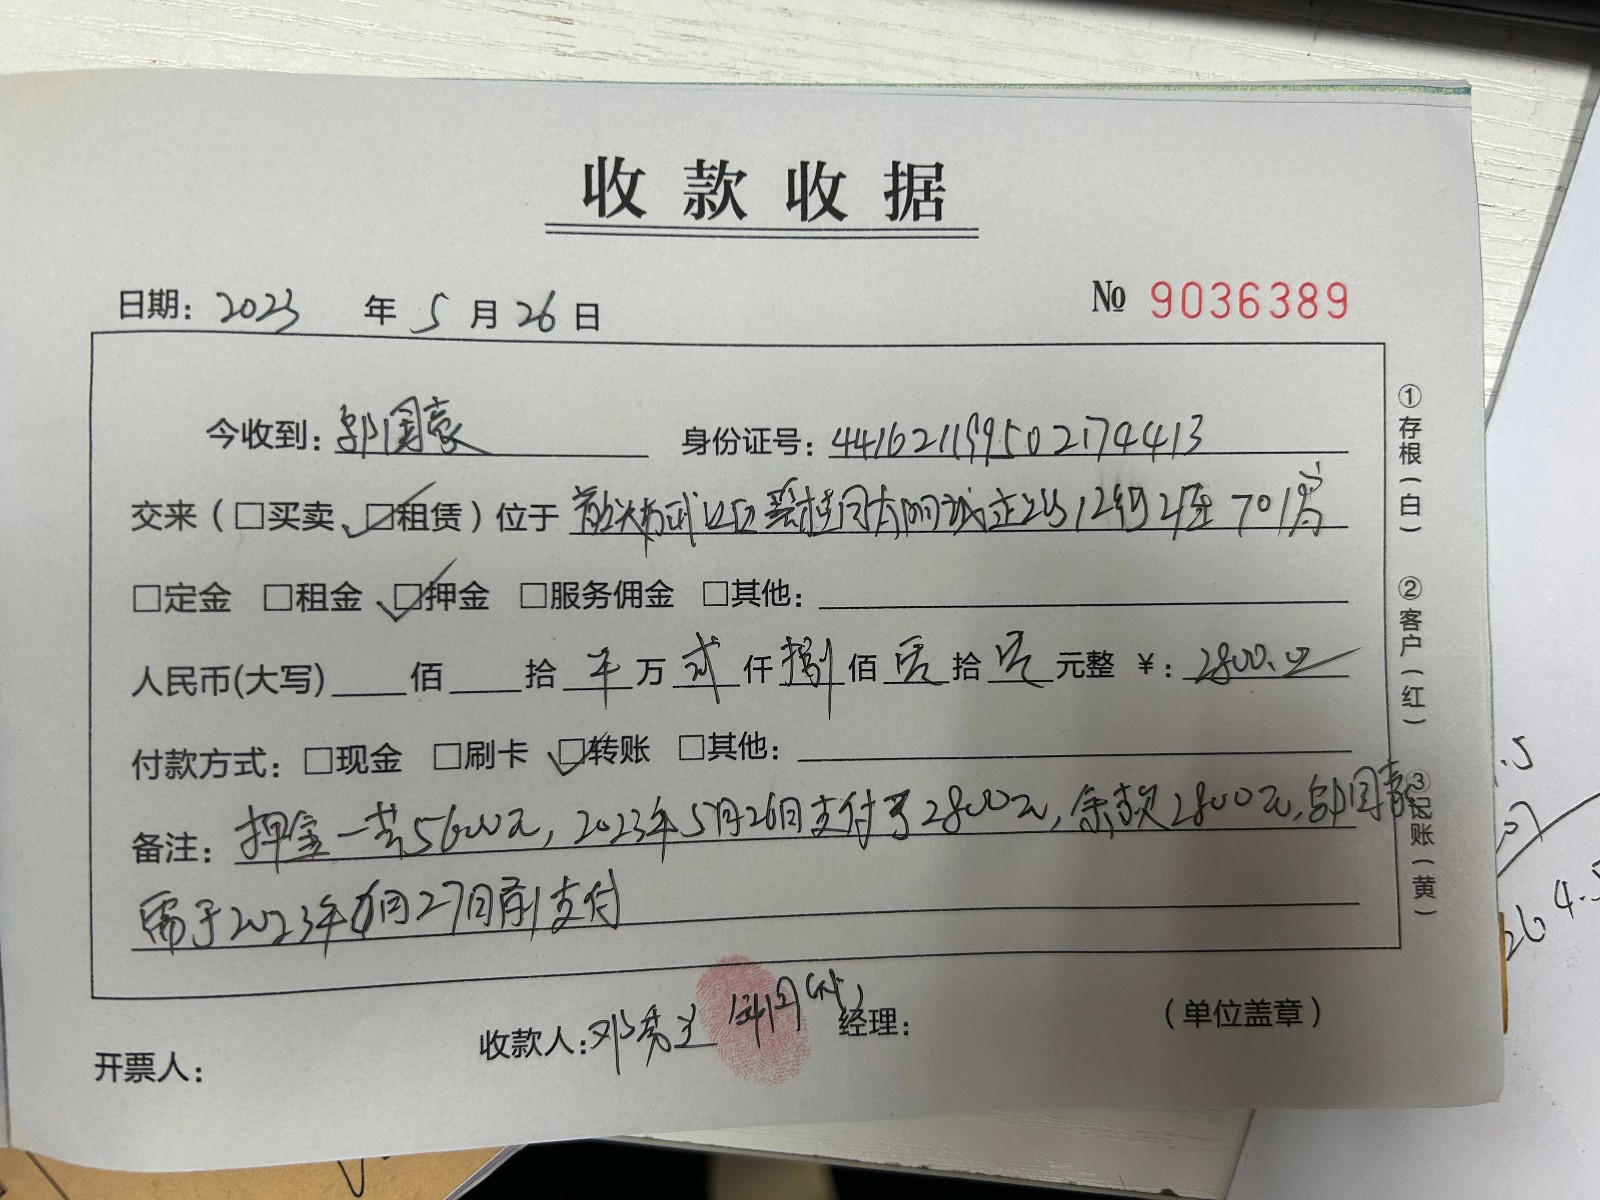 收款收据
日期: 2023 年 5 月 26 日 № 9036389
今收到: 郭国豪 身份证号: 441621199502174413
交来(□买卖 ☑租赁)位于 碧桂园太阳城 12号2座701房
□定金 □租金 ☑押金 □服务佣金 □其他:
人民币(大写) 佰 拾 万 贰 仟 捌 佰 零 拾 零 元整 ¥: 2800.00
付款方式: □现金 □刷卡 ☑转账 □其他:
备注: 押金一共5600元, 2023年5月26日支付了2800元, 余款2800元, 郭国豪
需于2023年6月27日前支付
收款人: 邓秀兰 (代) 经理: (单位盖章)
开票人:
①存根(白)
②客户(红)
③记账(黄)